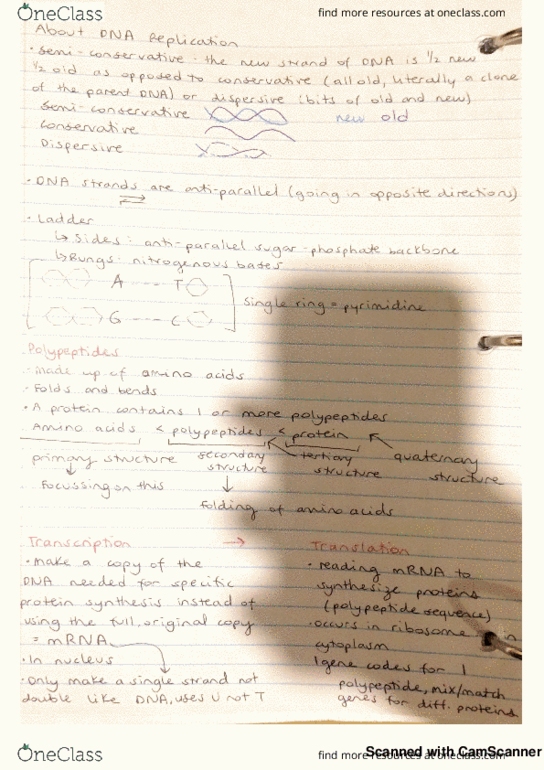 OneClass
find more resources at oneclass.com
About DNA Replication
· Semi-conservative - the new strand of DNA is 1/2 new
1/2 old as opposed to conservative (all old, literally a clone
of the parent DNA) or dispersive (bits of old and new)
Semi-conservative new old
Conservative
Dispersive
· DNA strands are anti-parallel (going in opposite directions)
· Ladder
↳ Sides: anti-parallel sugar-phosphate backbone
↳ Rungs: nitrogenous bases
A ---- T
G ---- C
Single ring = pyrimidine
Polypeptides
· Made up of amino acids
· Folds and bends
· A protein contains 1 or more polypeptides
Amino acids < polypeptides < protein
primary structure
secondary structure
tertiary structure
quaternary structure
↓
focussing on this
↓
folding of amino acids
Transcription →
· make a copy of the
DNA needed for specific
protein synthesis instead of
using the full, original copy
= mRNA
· In nucleus
· Only make a single strand not
double like DNA, uses U not T
Translation
· reading mRNA to
synthesize proteins
(polypeptide sequence)
· occurs in ribosome in
cytoplasm
1 gene codes for 1
polypeptide, mix/match
genes for diff. proteins
OneClass
find more resources at oneclass.com
Scanned with CamScanner